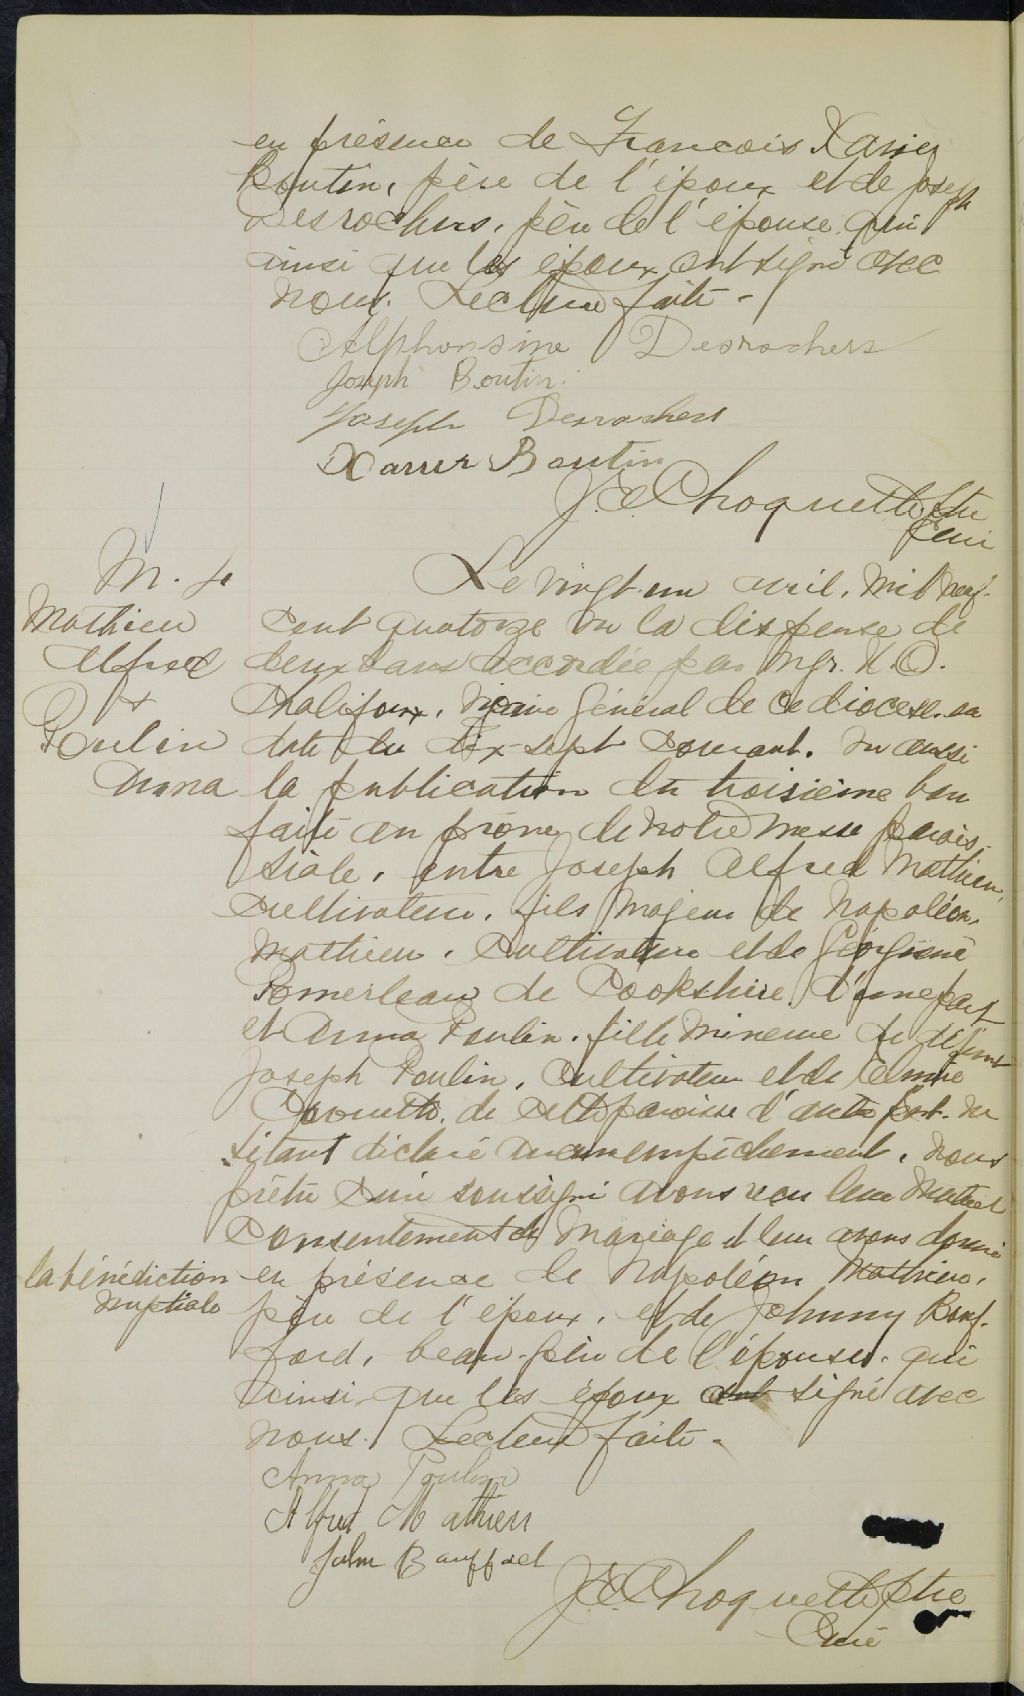 en présence de Francois Xavier
Boutin, père de l'époux et de Joseph
Desrochers, père de l'épouse qui
ainsi que les époux ont signé avec
nous. Lecture faite -
Alphonsine Desrochers
Joseph Boutin.
Joseph Desrochers
Xavier Boutin
J. E. Choquette Ptre
Curé
M. 
Mathieu
Alfred
&
Poulin
Anna
Le vingt-un avril, mil neuf-
cent quatorze vu la dispense de
deux bans accordée par Mgr. H. O.
Chalifoux, Vicaire Général de ce diocèse en
date du dix-sept courant. Vu aussi
la publication du troisième ban
faite au prône de notre messe parois-
siale, entre Joseph Alfred Mathieu,
cultivateur, fils majeur de Napoléon
Mathieu, cultivateur et de Géorgiene
Pomerleau de Cookshire, d'une part
et Anna Poulin, fille mineure de défunt
Joseph Poulin, cultivateur et de
de cette paroisse d'autre part. Ne
s'étant déclaré aucun empêchement, nous
prêtre curé soussigné avons reçu leur mutuel
consentement de mariage et leur avons donné
la bénédiction
nuptiale
en présence de Napoléon Mathieu,
père de l'époux, et de Johnny Bouf-
ford, beau-père de l'épouse, qui
ainsi que les époux ont signé avec
nous. Lecture faite -
Anna Poulin
Alfred Mathieu
John Bauffard
J. E. Choquette ptre
Curé